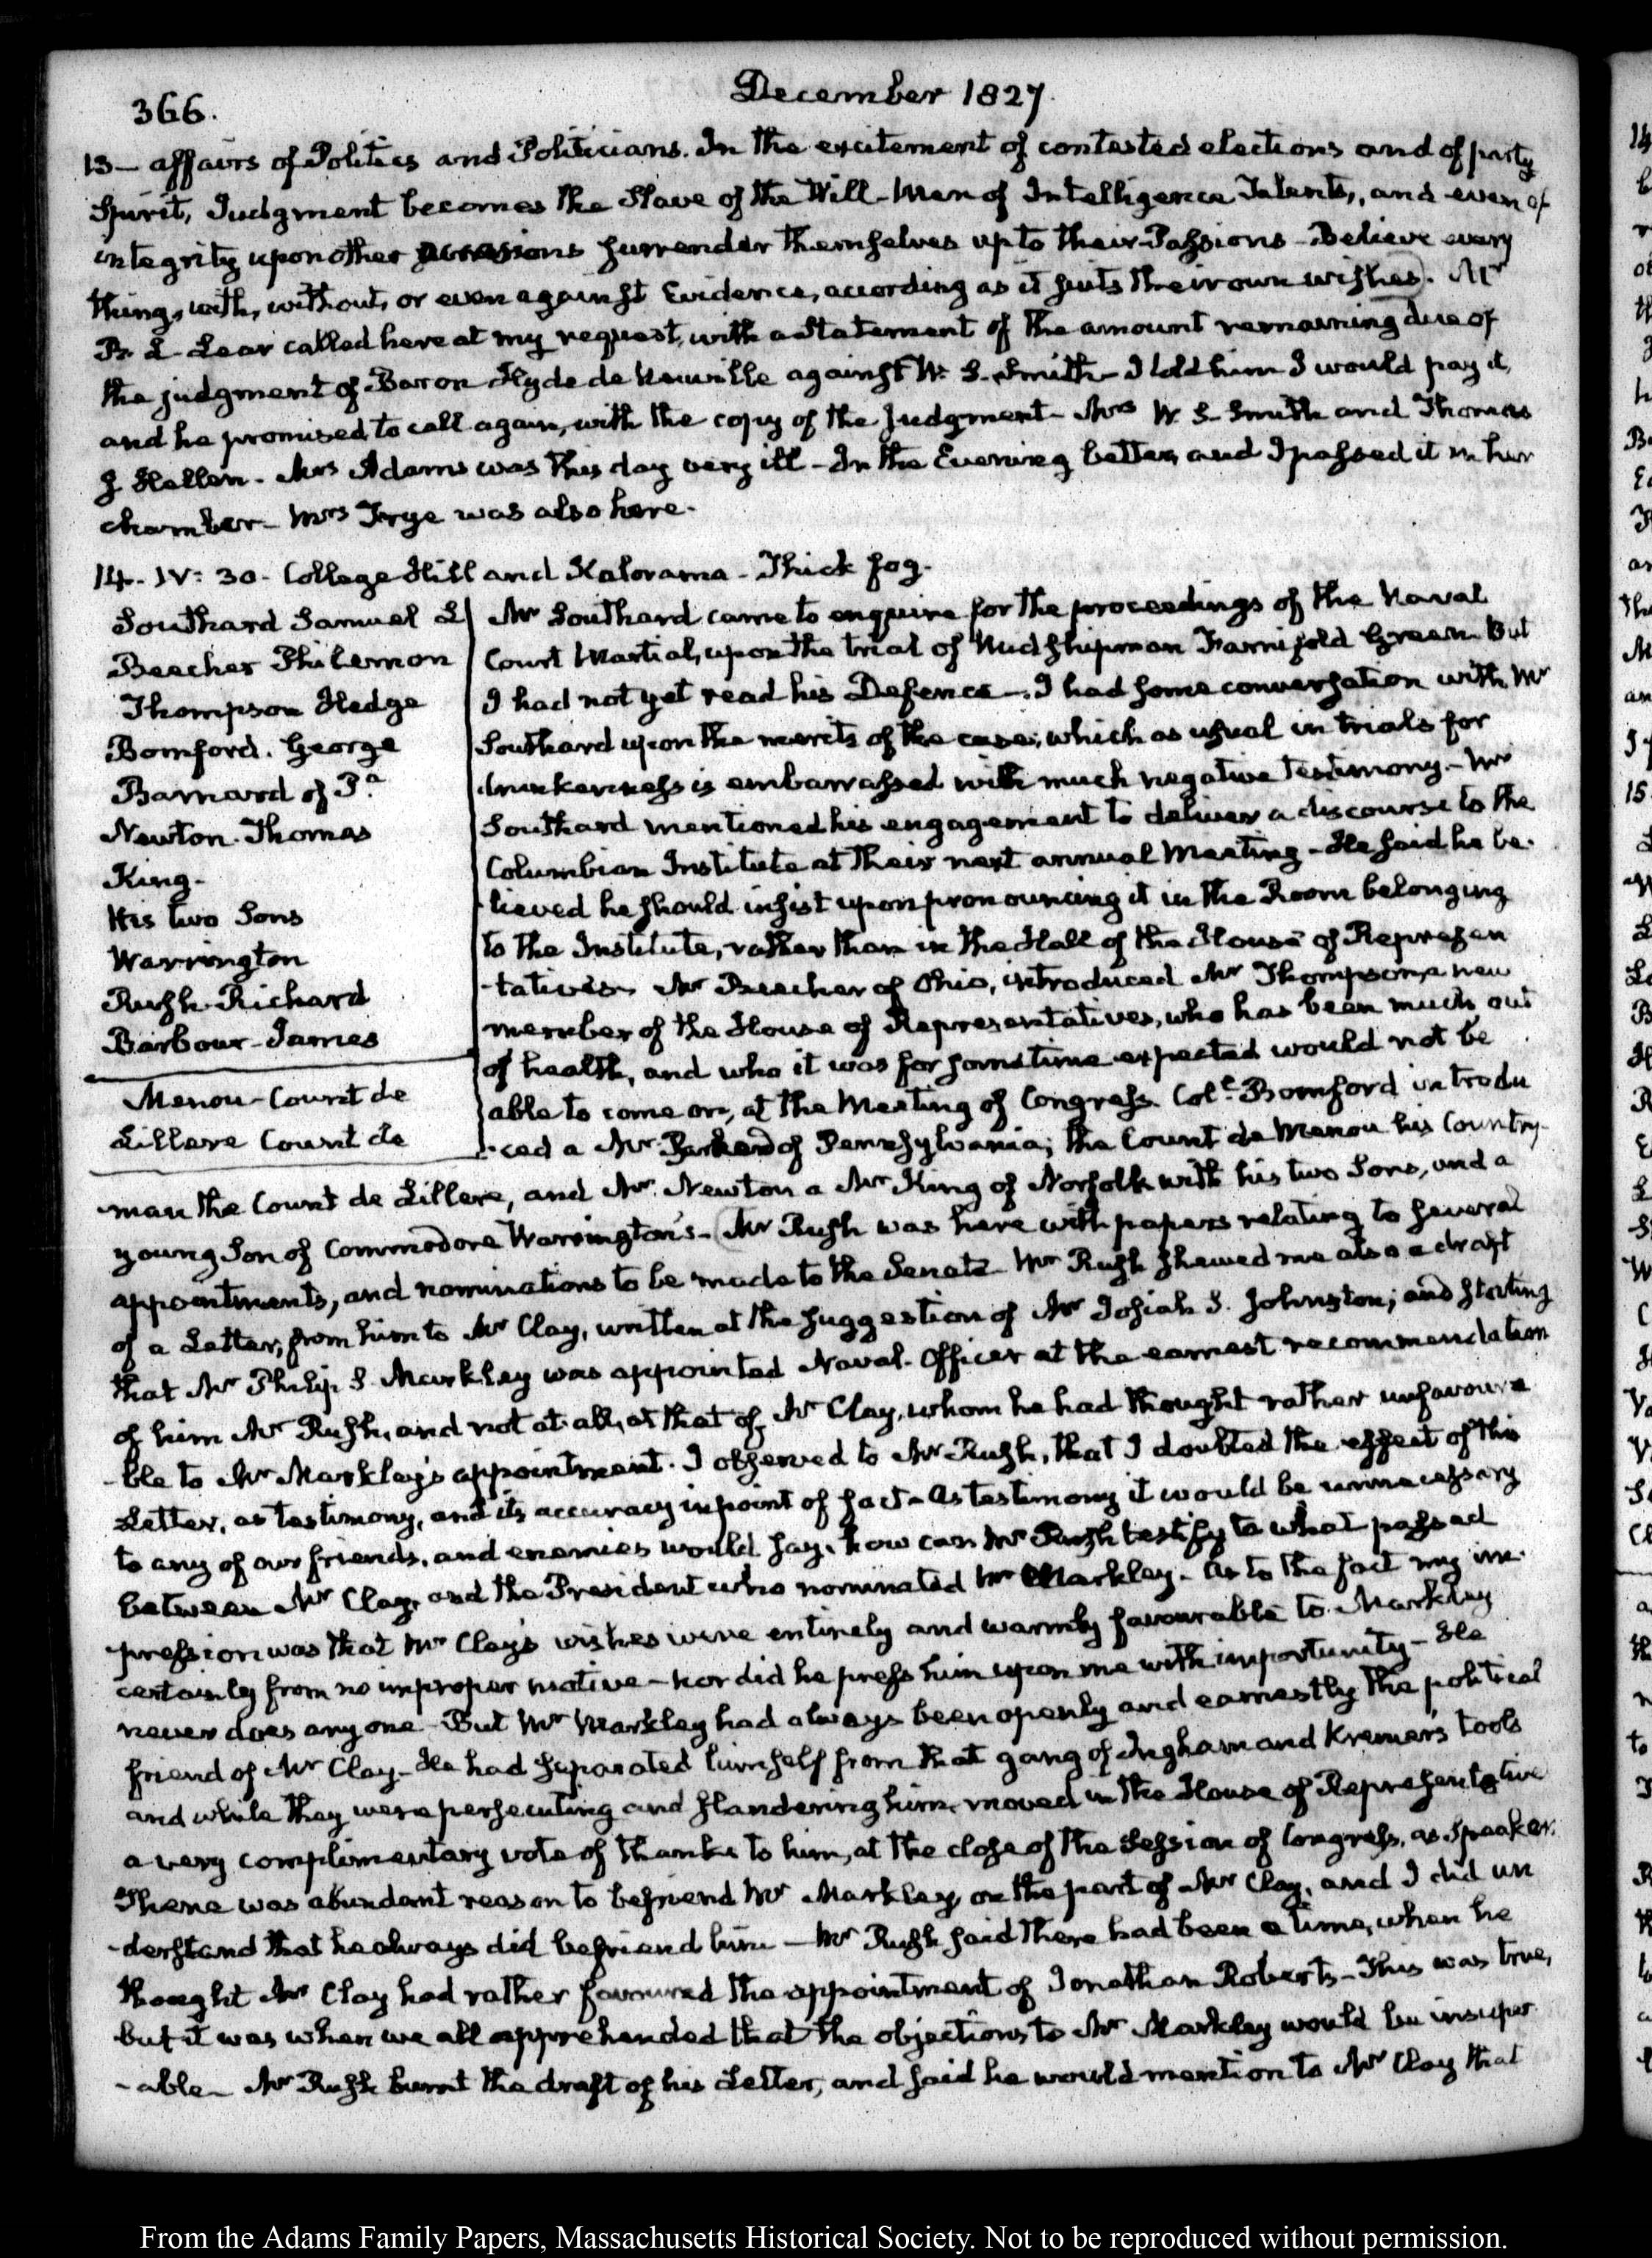 366.
December 1827.
13— affairs of Politics and Politicians. In the excitement of contested elections and of party
Spirit, Judgment becomes the Slave of the Will— Men of Intelligence Talents, and even of
integrity upon other occasions surrender themselves up to their Passions— Believe every
thing, with, without, or even against Evidence, according as it suits their own wishes. Mr
B. L. Lear called here at my request, with a Statement of the amount remaining due of
the judgment of Baron Hyde de Neuville against W. S. Smith— I told him I would pay it,
and he promised to call again, with the copy of the Judgment— Mrs W. S. Smith and Thomas
J Hellen— Mrs Adams was this day very ill— In the Evening better, and I passed it in her
chamber— Mrs Frye was also here.
14. IV: 30. College Hill and Kalorama— Thick fog.
Southard Samuel L
Beecher Philemon
Thompson Hedge
Bomford. George
Barnard of Pa
Newton. Thomas
King—
His two Sons
Warrington
Rush. Richard
Barbour— James
Menou— Count de
Lillere Count de
Mr Southard came to enquire for the proceedings of the Naval
Court Martial, upon the trial of Midshipman Farnifold Green. But
I had not yet read his Defence—. I had some conversation with Mr
Southard upon the merits of the case; which as usual in trials for
drunkenness is embarrassed with much negative testimony.— Mr
Southard mentioned his engagement to deliver a discourse to the
Columbian Institute at their next annual Meeting— He said he be-
-lieved he should insist upon pronouncing it in the Room belonging
to the Institute, rather than in the Hall of the House of Represen
-tatives— Mr Beecher of Ohio, introduced Mr Thompson, a new
member of the House of Representatives, who has been much out
of health, and who it was for some time expected would not be
able to come on, at the Meeting of Congress. Coll. Bomford introdu
-ced a Mr of Pennsylvania; the Count de Menou his Country-
-man the Count de Lillere, and Mr Newton a Mr King of Norfolk with his two Sons, and a
young Son of Commodore Warrington's— Mr Rush was here with papers relating to several
appointments, and nominations to be made to the Senate— Mr Rush shewed me also a draft
of a Letter, from him to Mr Clay, written at the suggestion of Mr Josiah S. Johnston; and stating
that Mr Philip S. Markley was appointed Naval-Officer at the earnest recommendation
of him Mr Rush, and not at all, at that of Mr Clay, whom he had thought rather unfavoura
-ble to Mr Markley's appointment. I observed to Mr Rush, that I doubted the effect of this
Letter, as testimony, and its accuracy in point of fact— As testimony it would be unnecessary
to any of our friends, and enemies would say, how can Mr Rush testify to what passed
between Mr Clay, and the President who nominated Mr Markley— As to the fact my im-
-pression was that Mr Clay's wishes were entirely and warmly favourable to Markley
certainly from no improper motive— nor did he press him upon me with importunity— He
never does any one— But Mr Markley had always been openly and earnestly the political
friend of Mr Clay— He had separated himself from that gang of Ingham and Kremer's tools
and while they were persecuting and slandering him, moved in the House of Representative
a very complimentary vote of thanks to him, at the close of the Session of Congress, as Speaker.
There was abundant reason to befriend Mr Markley, on the part of Mr Clay, and I did un
-derstand that he always did befriend him— Mr Rush said there had been a time, when he
thought Mr Clay had rather favoured the appointment of Jonathan Roberts— This was true,
but it was when we all apprehended that the objections to Mr Markley would be insuper
-able— Mr Rush burnt the draft of his Letter, and said he would mention to Mr Clay that
From the Adams Family Papers, Massachusetts Historical Society. Not to be reproduced without permission.